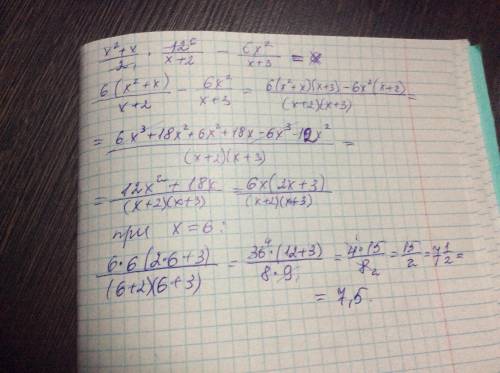 (x²+x)/2 · 12⁶/(x+2) − 6x²/(x+3) =
6(x²+x)/(x+2) − 6x²/(x+3) = (6(x²+x)(x+3)−6x²(x+2))/((x+2)(x+3)) =
= (6x³+18x²+6x²+18x−6x³−12x²)/((x+2)(x+3)) =
= (12x²+18x)/((x+2)(x+3)) = 6x(2x+3)/((x+2)(x+3))
при x=6:
6·6(2·6+3)/((6+2)(6+3)) = 36⁴·(12+3)/(8·9) = 4·15/8₂ = 15/2 = 7 1/2 =
= 7,5.